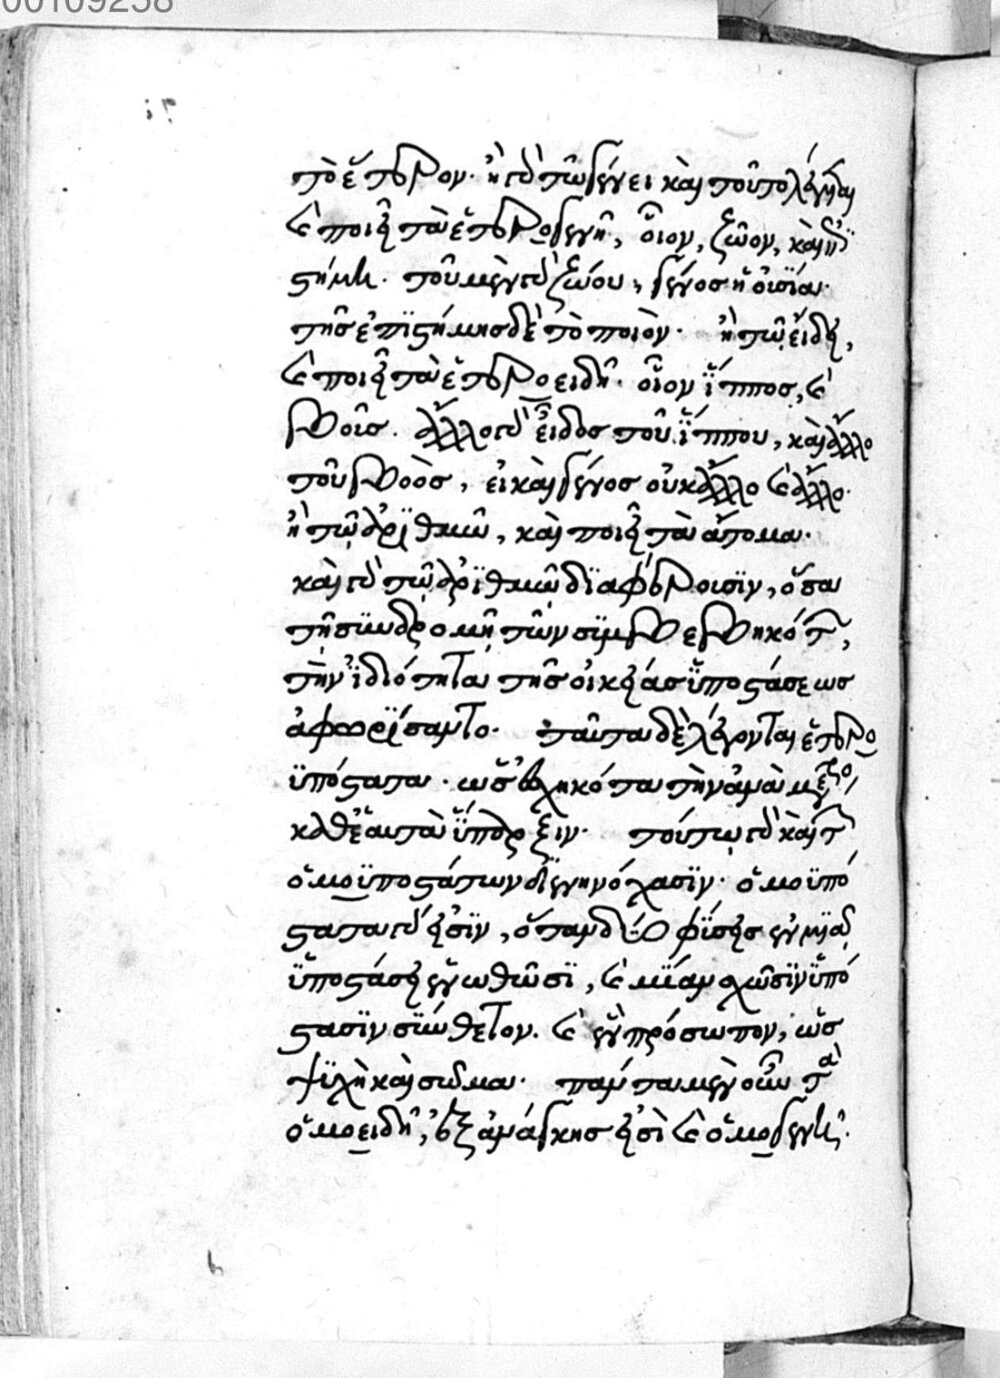 00109258
τὸ ἕτερον· ἢ γὰρ τῷ γένει καὶ τοῦτο λέγεται
καὶ ποιεῖ τὰ ἑτερογενῆ, οἷον, ζῶον, καὶ ἐπι
στήμη· τοῦ μὲν γὰρ ζώου, γένος ἡ οὐσία·
τῆς ἐπιστήμης δὲ τὸ ποιὸν· ἢ τῷ εἴδει,
καὶ ποιεῖ τὰ ἑτεροειδῆ· οἷον ἵππος, καὶ
βοῦς. ἄλλο γὰρ εἶδος τοῦ ἵππου, καὶ ἄλλο
τοῦ βοὸς, εἰ καὶ γένος οὐκ ἄλλο καὶ ἄλλο·
ἢ τῷ ἀριθμῷ, καὶ ποιεῖ τὰ ἄτομα·
καὶ γὰρ τῷ ἀριθμῷ διαφέρουσιν, ὅσα
τῇ συνδρομῇ τῶν συμβεβηκότων,
τὴν ἰδιότητα τῆς οἰκείας ὑποστάσεως
ἀφωρίσαντο· ταῦτα δὲ λέγονται ἑτερο
ϋπόστατα· ὡς εἰληχότα τὴν ἀνὰ μέρος,
καθ' ἑαυτὰ ὕπαρξιν· τούτῳ γὰρ καὶ τῶν
ὁμοϋποστάτων διενηνόχασιν· ὁμοϋπό
στατα γὰρ εἰσὶν, ὅταν δύο φύσεις ἐν μιᾷ
ὑποστάσει ἑνωθῶσι, καὶ μίαν σχῶσιν ὑπό
στασιν σύνθετον. καὶ ἓν πρόσωπον, ὡς
ψυχὴ καὶ σῶμα· πάντα μὲν οὖν τὰ
ὁμοειδῆ, ἐξ ἀνάγκης εἰσὶ καὶ ὁμογενῆ·